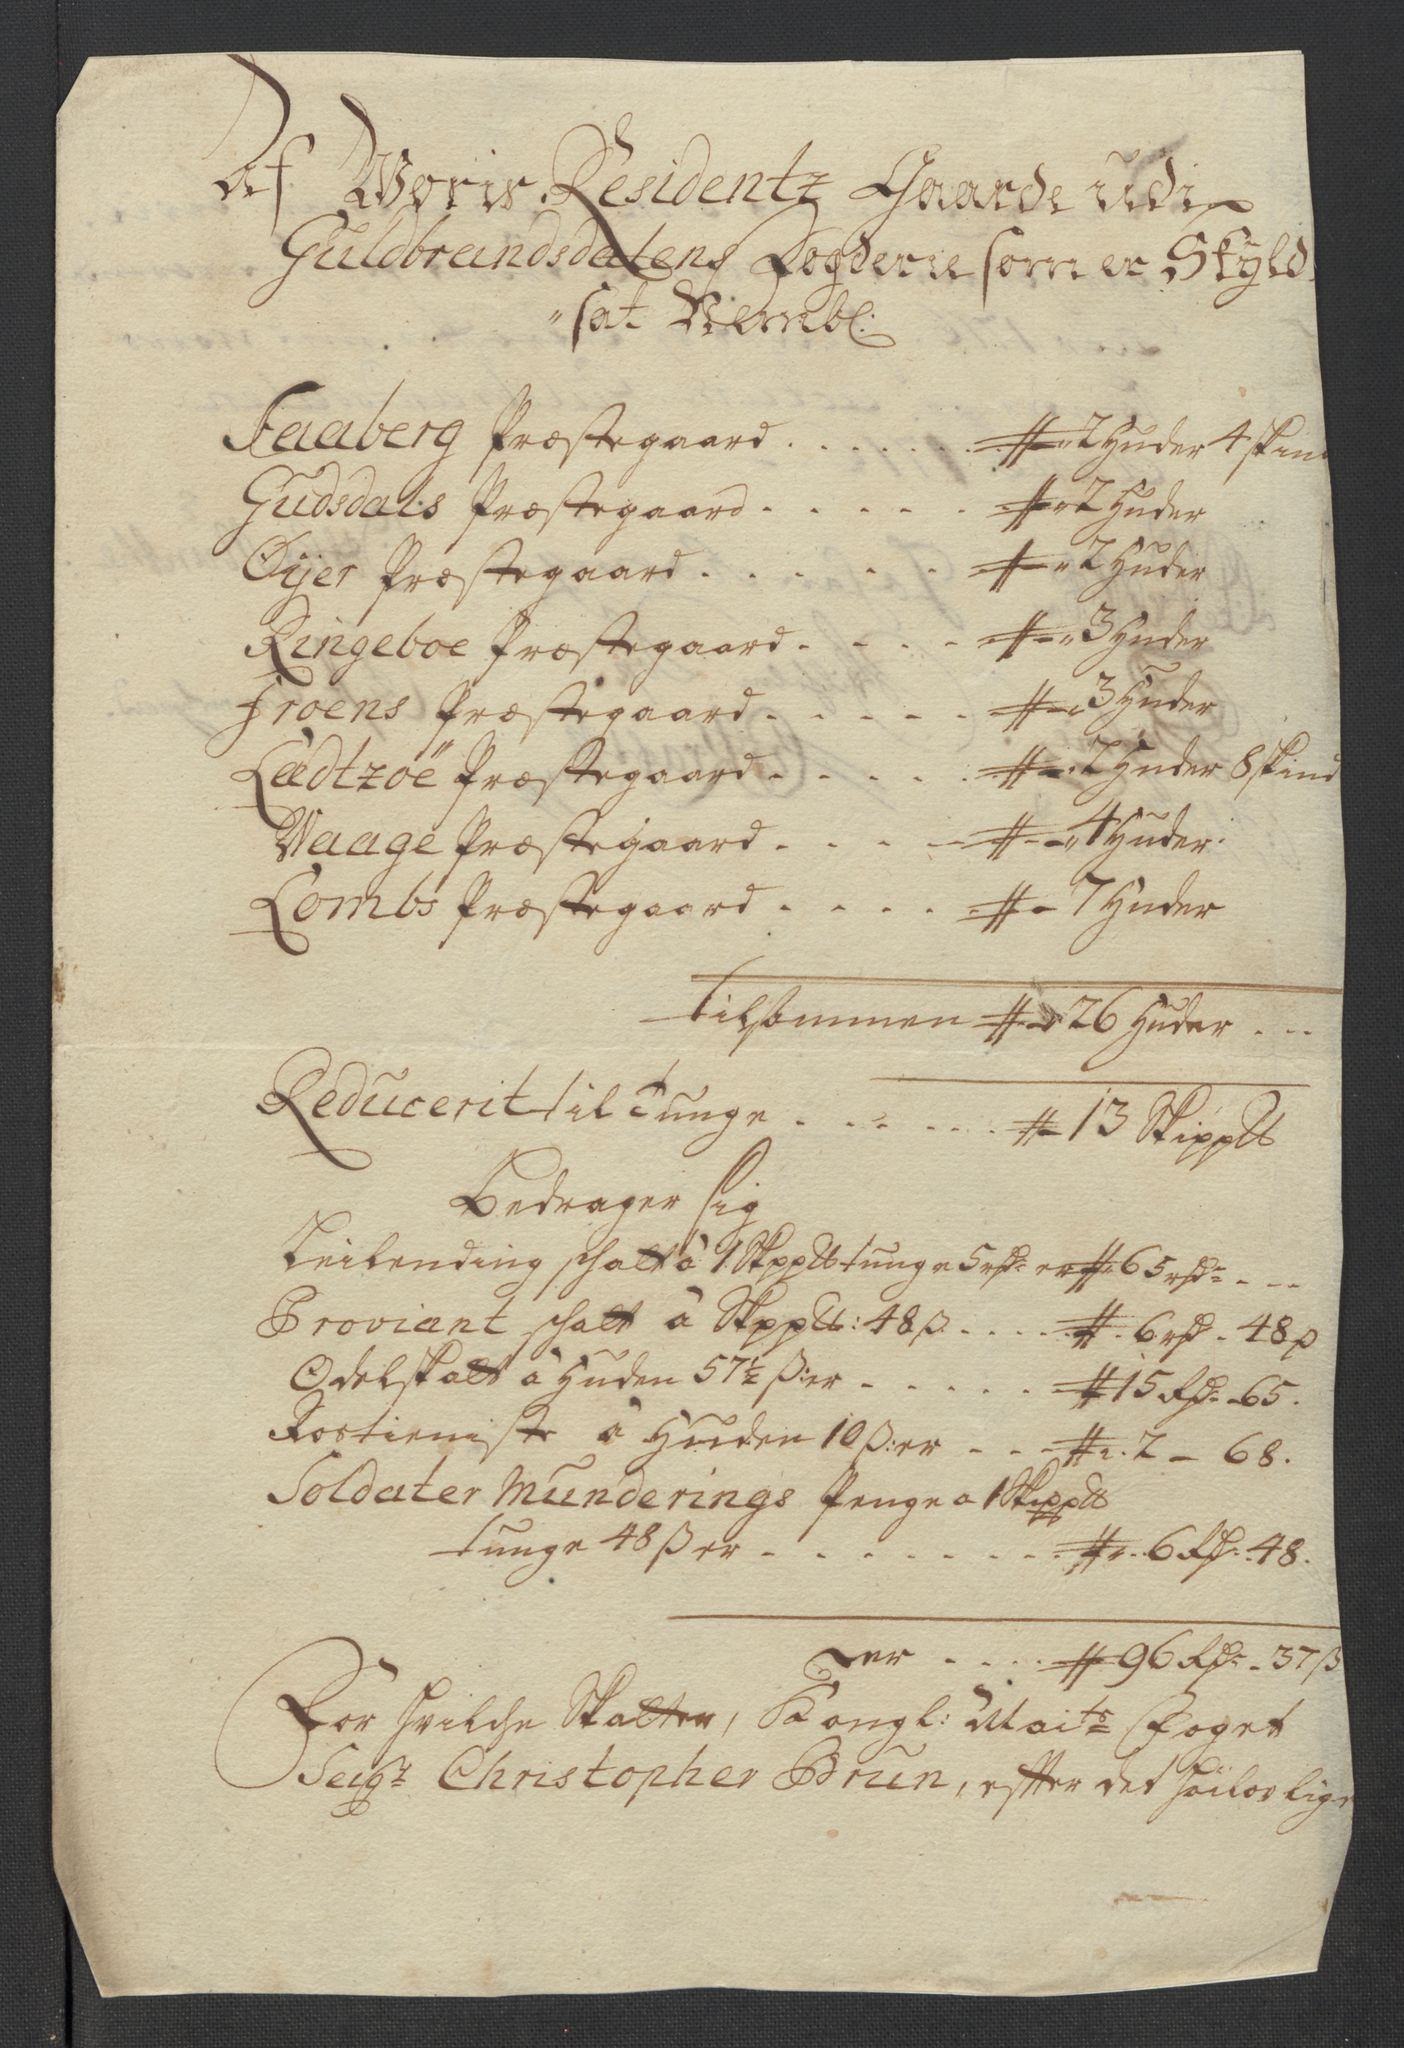 Af Woris Residentz Gaarde udi
Guldbrandsdalens Fogderie som er Skyld
sat Nembl:
Faaberg Præstegaard . . . . . . 2 Huder 4 skind
Gudsdals Præstegaard . . . . . 2 Huder
Øyer Præstegaard . . . . . . 2 Huder
Ringeboe Præstegaard . . . . 3 Huder
Froens Præstegaard . . . . . 3 Huder
Lædtzöe Præstegaard . . . . . 2 Huder 8 skind
Waage Præstegaard . . . . 4 Huder
Lombs Præstegaard . . . . . 7 Huder
tilsammen 26 Huder . . .
Reducerit til Tunge . . . . . . 13 Skippd
Bedrager sig
Leilending schatt à 1 Skppd tunge 5 rdr er 65 rdr . . .
Proviant schatt à Skppd: 48 ß . . . . . 6 rd - 48 ß
Odelskatt à Huden 57½ ß: er . . . . . 15 Rdr - 65.
Rostieniste à Huden 10 ß: er . . . 2 - 68.
Soldater Munderings Penge a 1 Skippd
tunge 48 ß er . . . . . . . . 6 Rdr - 48.
er . . . . 96 Rdr - 37 ß
For hvilche Skatter, Kongl: Maits Foget
Seigr Christopher Brun, efter det høilovlige